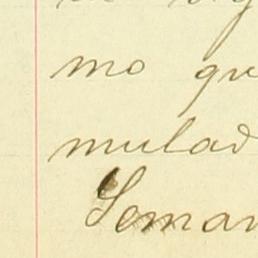 mo qu
mulad
Seman